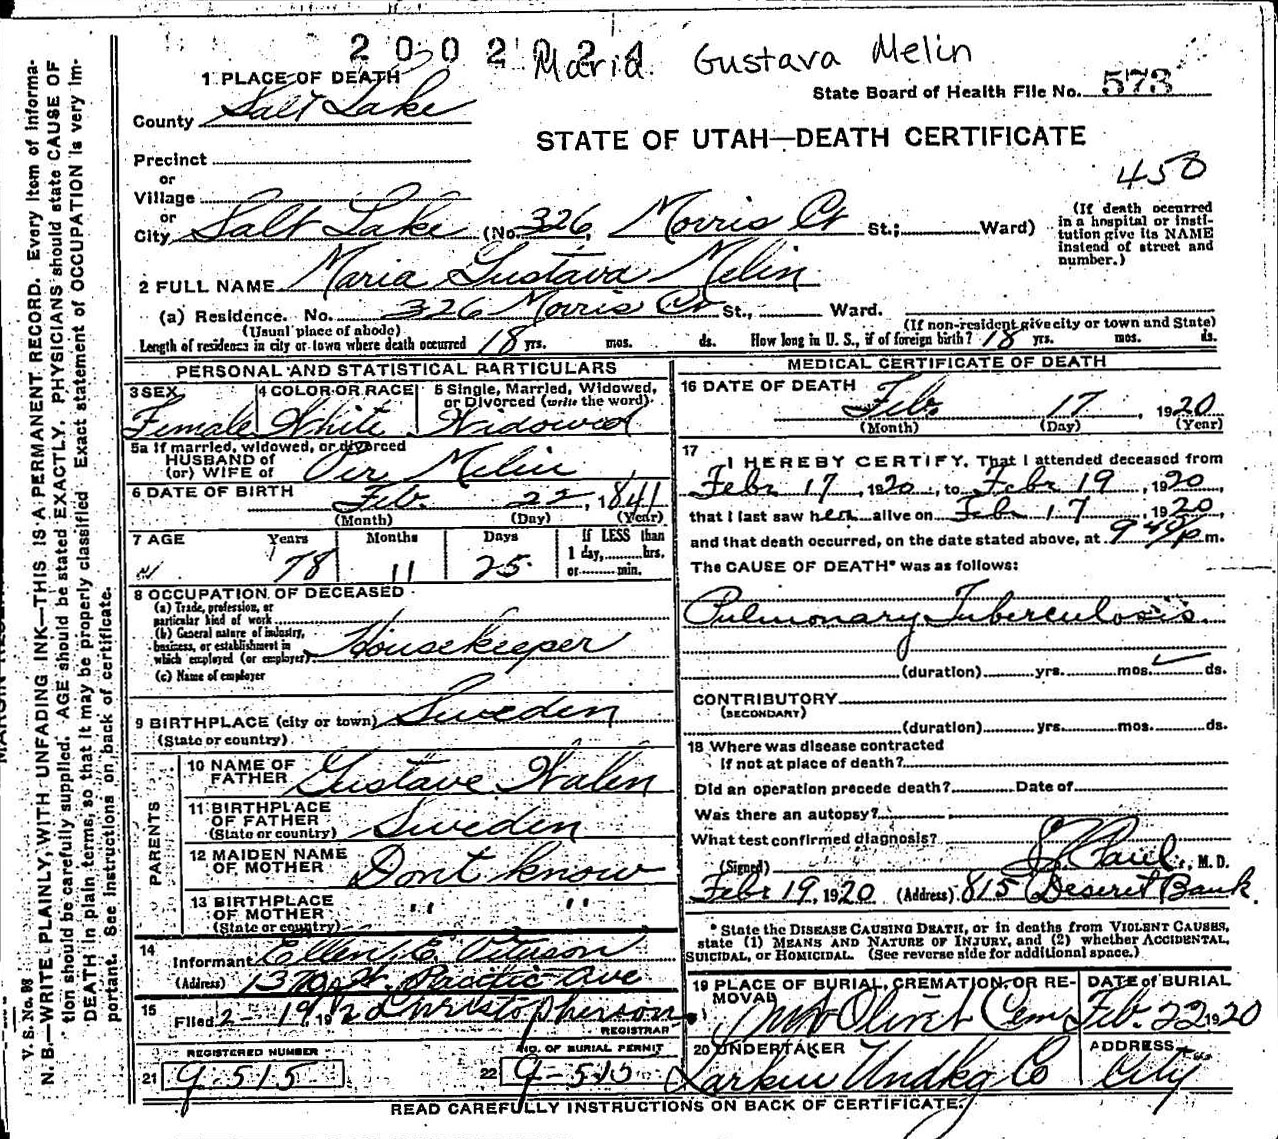 2002024
Maria Gustava Melin
1 PLACE OF DEATH
State Board of Health File No. 573
County Salt Lake
STATE OF UTAH—DEATH CERTIFICATE
Precinct
or
458
Village
or
City Salt Lake (No. 326, Morris Ct St.; Ward)
(If death occurred in a hospital or insti-
tution give its NAME instead of street and number.)
2 FULL NAME Maria Gustava Melin
(a) Residence. No. 326 Morris Ct St., Ward.
(Usual place of abode) (If non-resident give city or town and State)
Length of residence in city or town where death occurred 18 yrs. mos. ds. How long in U. S., if of foreign birth? 18 yrs. mos. ds.
PERSONAL AND STATISTICAL PARTICULARS
3 SEX Female
4 COLOR OR RACE White
5 Single, Married, Widowed, or Divorced (write the word) Widowed
5a If married, widowed, or divorced
HUSBAND of
(or) WIFE of Per Melin
6 DATE OF BIRTH Feb. 22, 1841
(Month) (Day) (Year)
7 AGE Years Months Days If LESS than
78 11 25 1 day, hrs.
or min.
8 OCCUPATION OF DECEASED
(a) Trade, profession, or
particular kind of work
(b) General nature of industry,
business, or establishment in
which employed (or employer) Housekeeper
(c) Name of employer
9 BIRTHPLACE (city or town) Sweden
(State or country)
PARENTS
10 NAME OF
FATHER Gustave Walin
11 BIRTHPLACE
OF FATHER
(State or country) Sweden
12 MAIDEN NAME
OF MOTHER Dont know
13 BIRTHPLACE
OF MOTHER " "
(State or country)
14
Informant Ellen E. Peterson
(Address) 1370 W. Pacific Ave
15
Filed 2-19, 1920 Christopherson
REGISTRAR
REGISTERED NUMBER
21 9-515
NO. OF BURIAL PERMIT
22 9-515
MEDICAL CERTIFICATE OF DEATH
16 DATE OF DEATH
Feb. 17, 1920
(Month) (Day) (Year)
17
I HEREBY CERTIFY, That I attended deceased from
Febr 17, 1920, to Febr 19, 1920,
that I last saw her alive on Feb 17, 1920,
and that death occurred, on the date stated above, at 9 40 p m.
The CAUSE OF DEATH* was as follows:
Pulmonary Tuberculosis.
(duration) yrs. mos. ds.
CONTRIBUTORY
(SECONDARY)
(duration) yrs. mos. ds.
18 Where was disease contracted
if not at place of death?
Did an operation precede death? Date of
Was there an autopsy?
What test confirmed diagnosis?
(Signed) Paul, M. D.
Febr 19, 1920 (Address) 815 Deseret Bank.
* State the DISEASE CAUSING DEATH, or in deaths from VIOLENT CAUSES,
state (1) MEANS AND NATURE OF INJURY, and (2) whether ACCIDENTAL,
SUICIDAL, or HOMICIDAL. (See reverse side for additional space.)
19 PLACE OF BURIAL, CREMATION, OR RE-
MOVAL Mt Olivet Cem
DATE of BURIAL
Feb. 22 1920
20 UNDERTAKER
Larkin Undkg Co
ADDRESS
City
READ CAREFULLY INSTRUCTIONS ON BACK OF CERTIFICATE.
V. S. No. 98
N. B.—WRITE PLAINLY, WITH UNFADING INK—THIS IS A PERMANENT RECORD. Every item of informa-
tion should be carefully supplied. AGE should be stated EXACTLY. PHYSICIANS should state CAUSE OF
DEATH in plain terms, so that it may be properly classified. Exact statement of OCCUPATION is very im-
portant. See instructions on back of certificate.